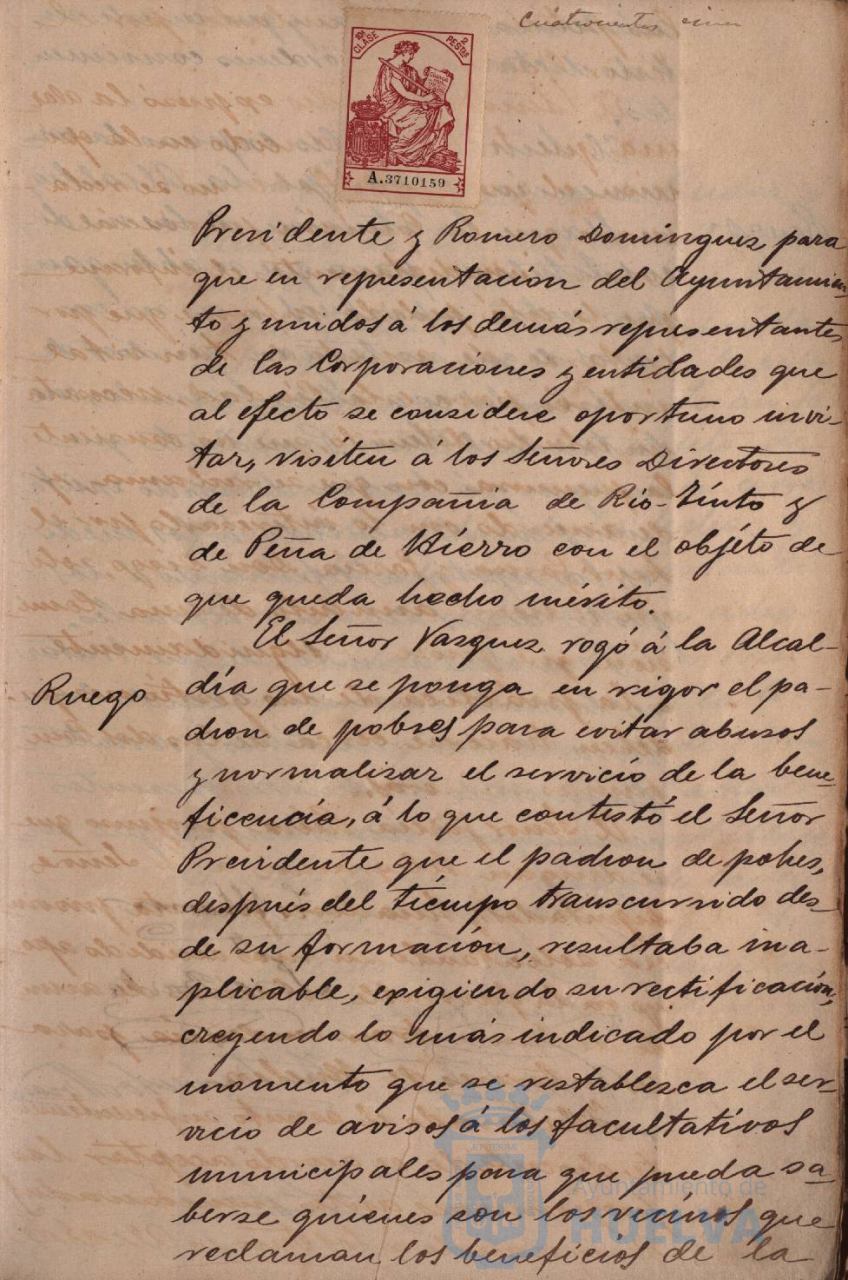 Cuatrocientos cinco
10ª CLASE 2 PESTAS
A.3710159
Presidente y Romero Dominguez para
que en representación del Ayuntamien-
to y unidos á los demás representantes
de las Corporaciones y entidades que
al efecto se considere oportuno invi-
tar, visiten á los Señores Directores
de la Compañia de Rio-Tinto y
de Peña de Hierro con el objéto de
que queda hecho mérito.
El Señor Vasquez rogó á la Alcal-
Ruego
día que se ponga en vigor el pa-
dron de pobres para evitar abusos
y normalisar el servicio de la bene-
ficencia, á lo que contestó el Señor
Presidente que el padron de pobes,
después del tiempo transcurrido des-
de su formación, resultaba ina-
plicable, exigiendo su rectificación,
creyendo lo más indicado por el
momento que se restablesca el ser-
vicio de avisos á los facultativos
municipales para que pueda sa-
berse quienes son los vecinos que
reclaman los beneficios de la
Ayuntamiento de
HUELVA